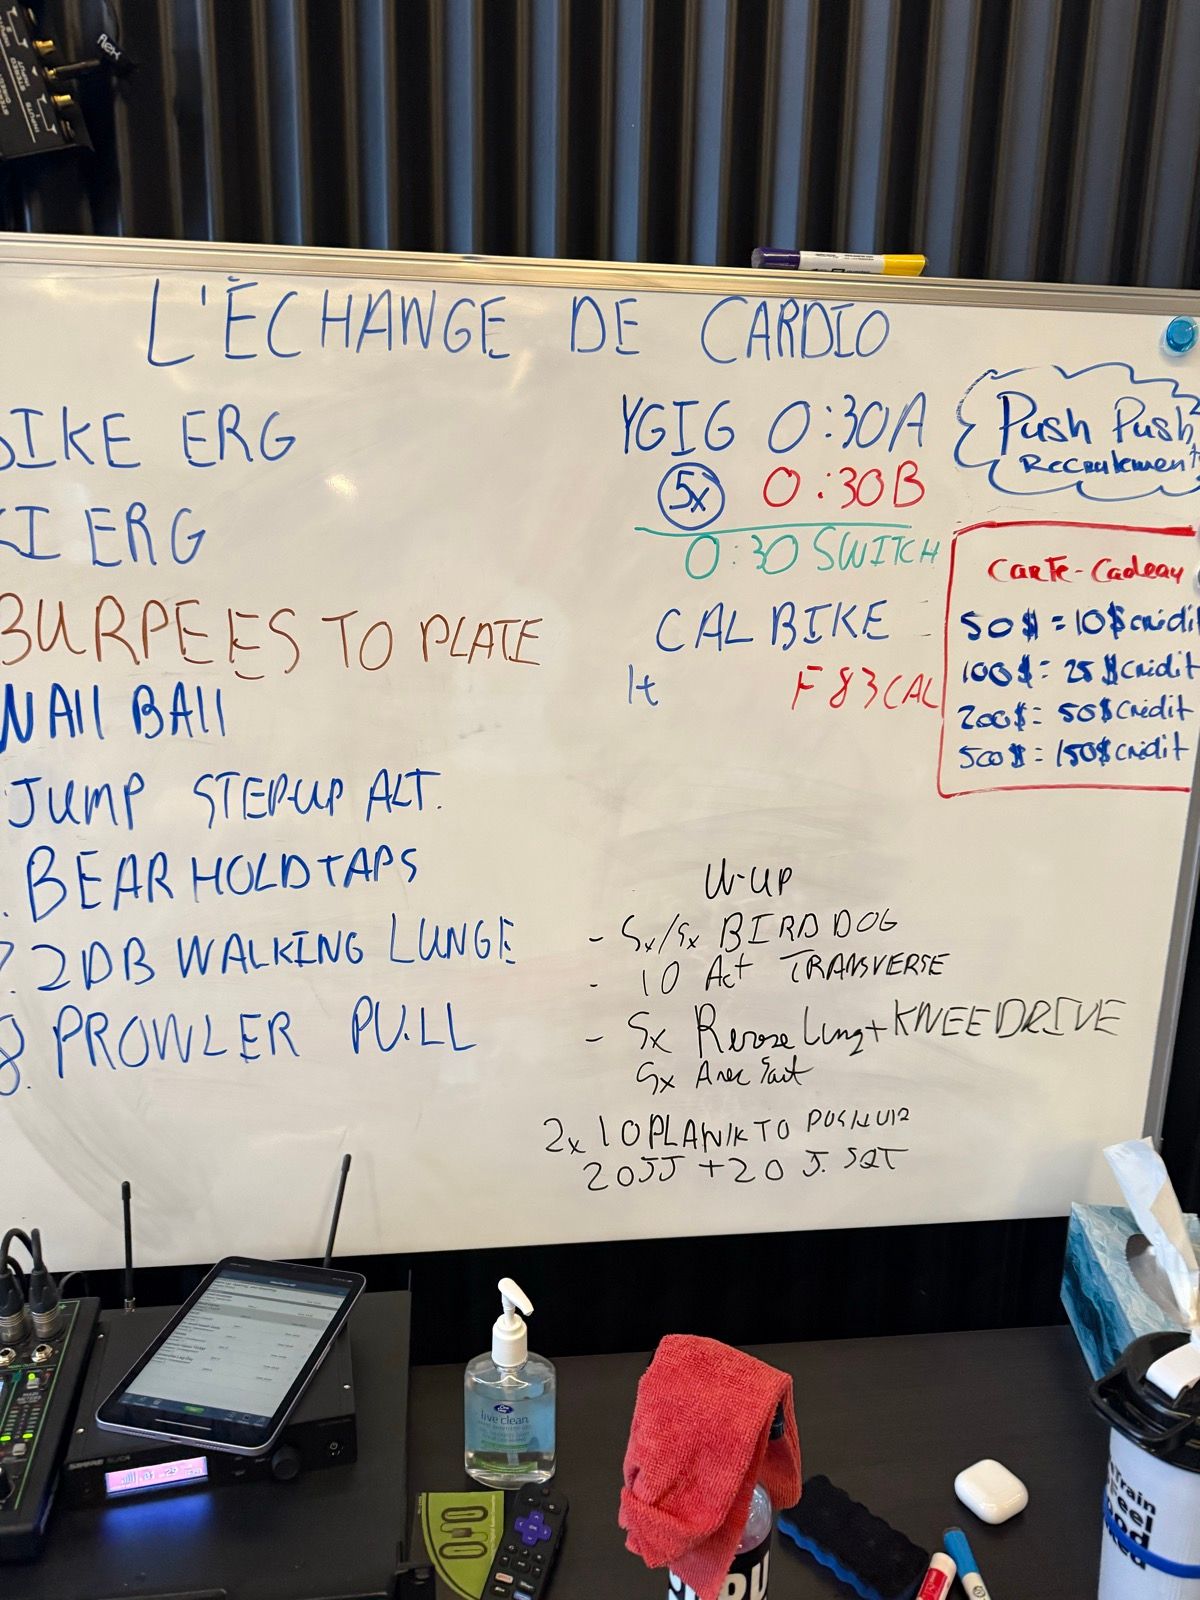 L'ÉCHANGE DE CARDIO
BIKE ERG
KI ERG
BURPEES TO PLATE
WAll BAll
JUMP STEP-UP ALT.
BEAR HOLD TAPS
7. 2DB WALKING LUNGE
8. PROWLER PULL
YGIG 0:30A
5x 0:30B
0:30 SWITCH
CAL BIKE
F 83 CAL
Push Push
Recrutement
Carte-Cadeau
50$ = 10$ crédit
100$ = 25$ crédit
200$ = 50$ crédit
500$ = 150$ crédit
W-UP
- 5x/5x BIRD DOG
- 10 Act TRANSVERSE
- 5x Reverse Lung + KNEE DRIVE
5x
2x 10 PLANK TO PUSHUP
20 JJ + 20 J. SQT
flex
STEREO
INPUT
INPUTS
live clean
Train
Feel